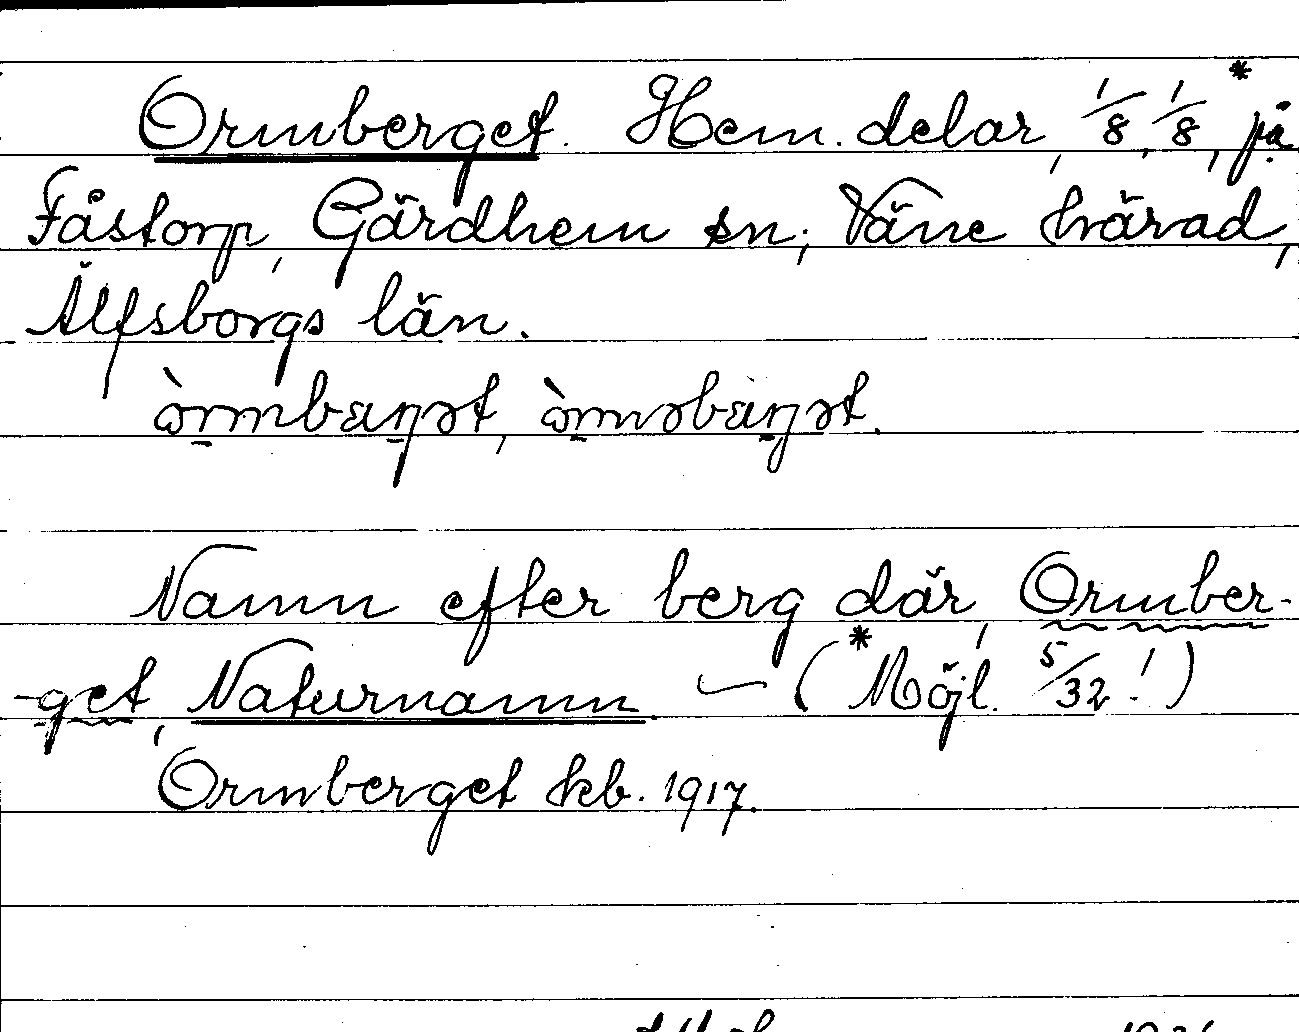 Ormberget. Hem. delar, 1/8, 1/8*, på
Fåstorp, Gärdhem sn; Väne härad,
Älfsborgs län.
Namn efter berg där, Ormber-
-get, Naturnamn (*Möjl. 5/32!)
Ormberget kb. 1917.